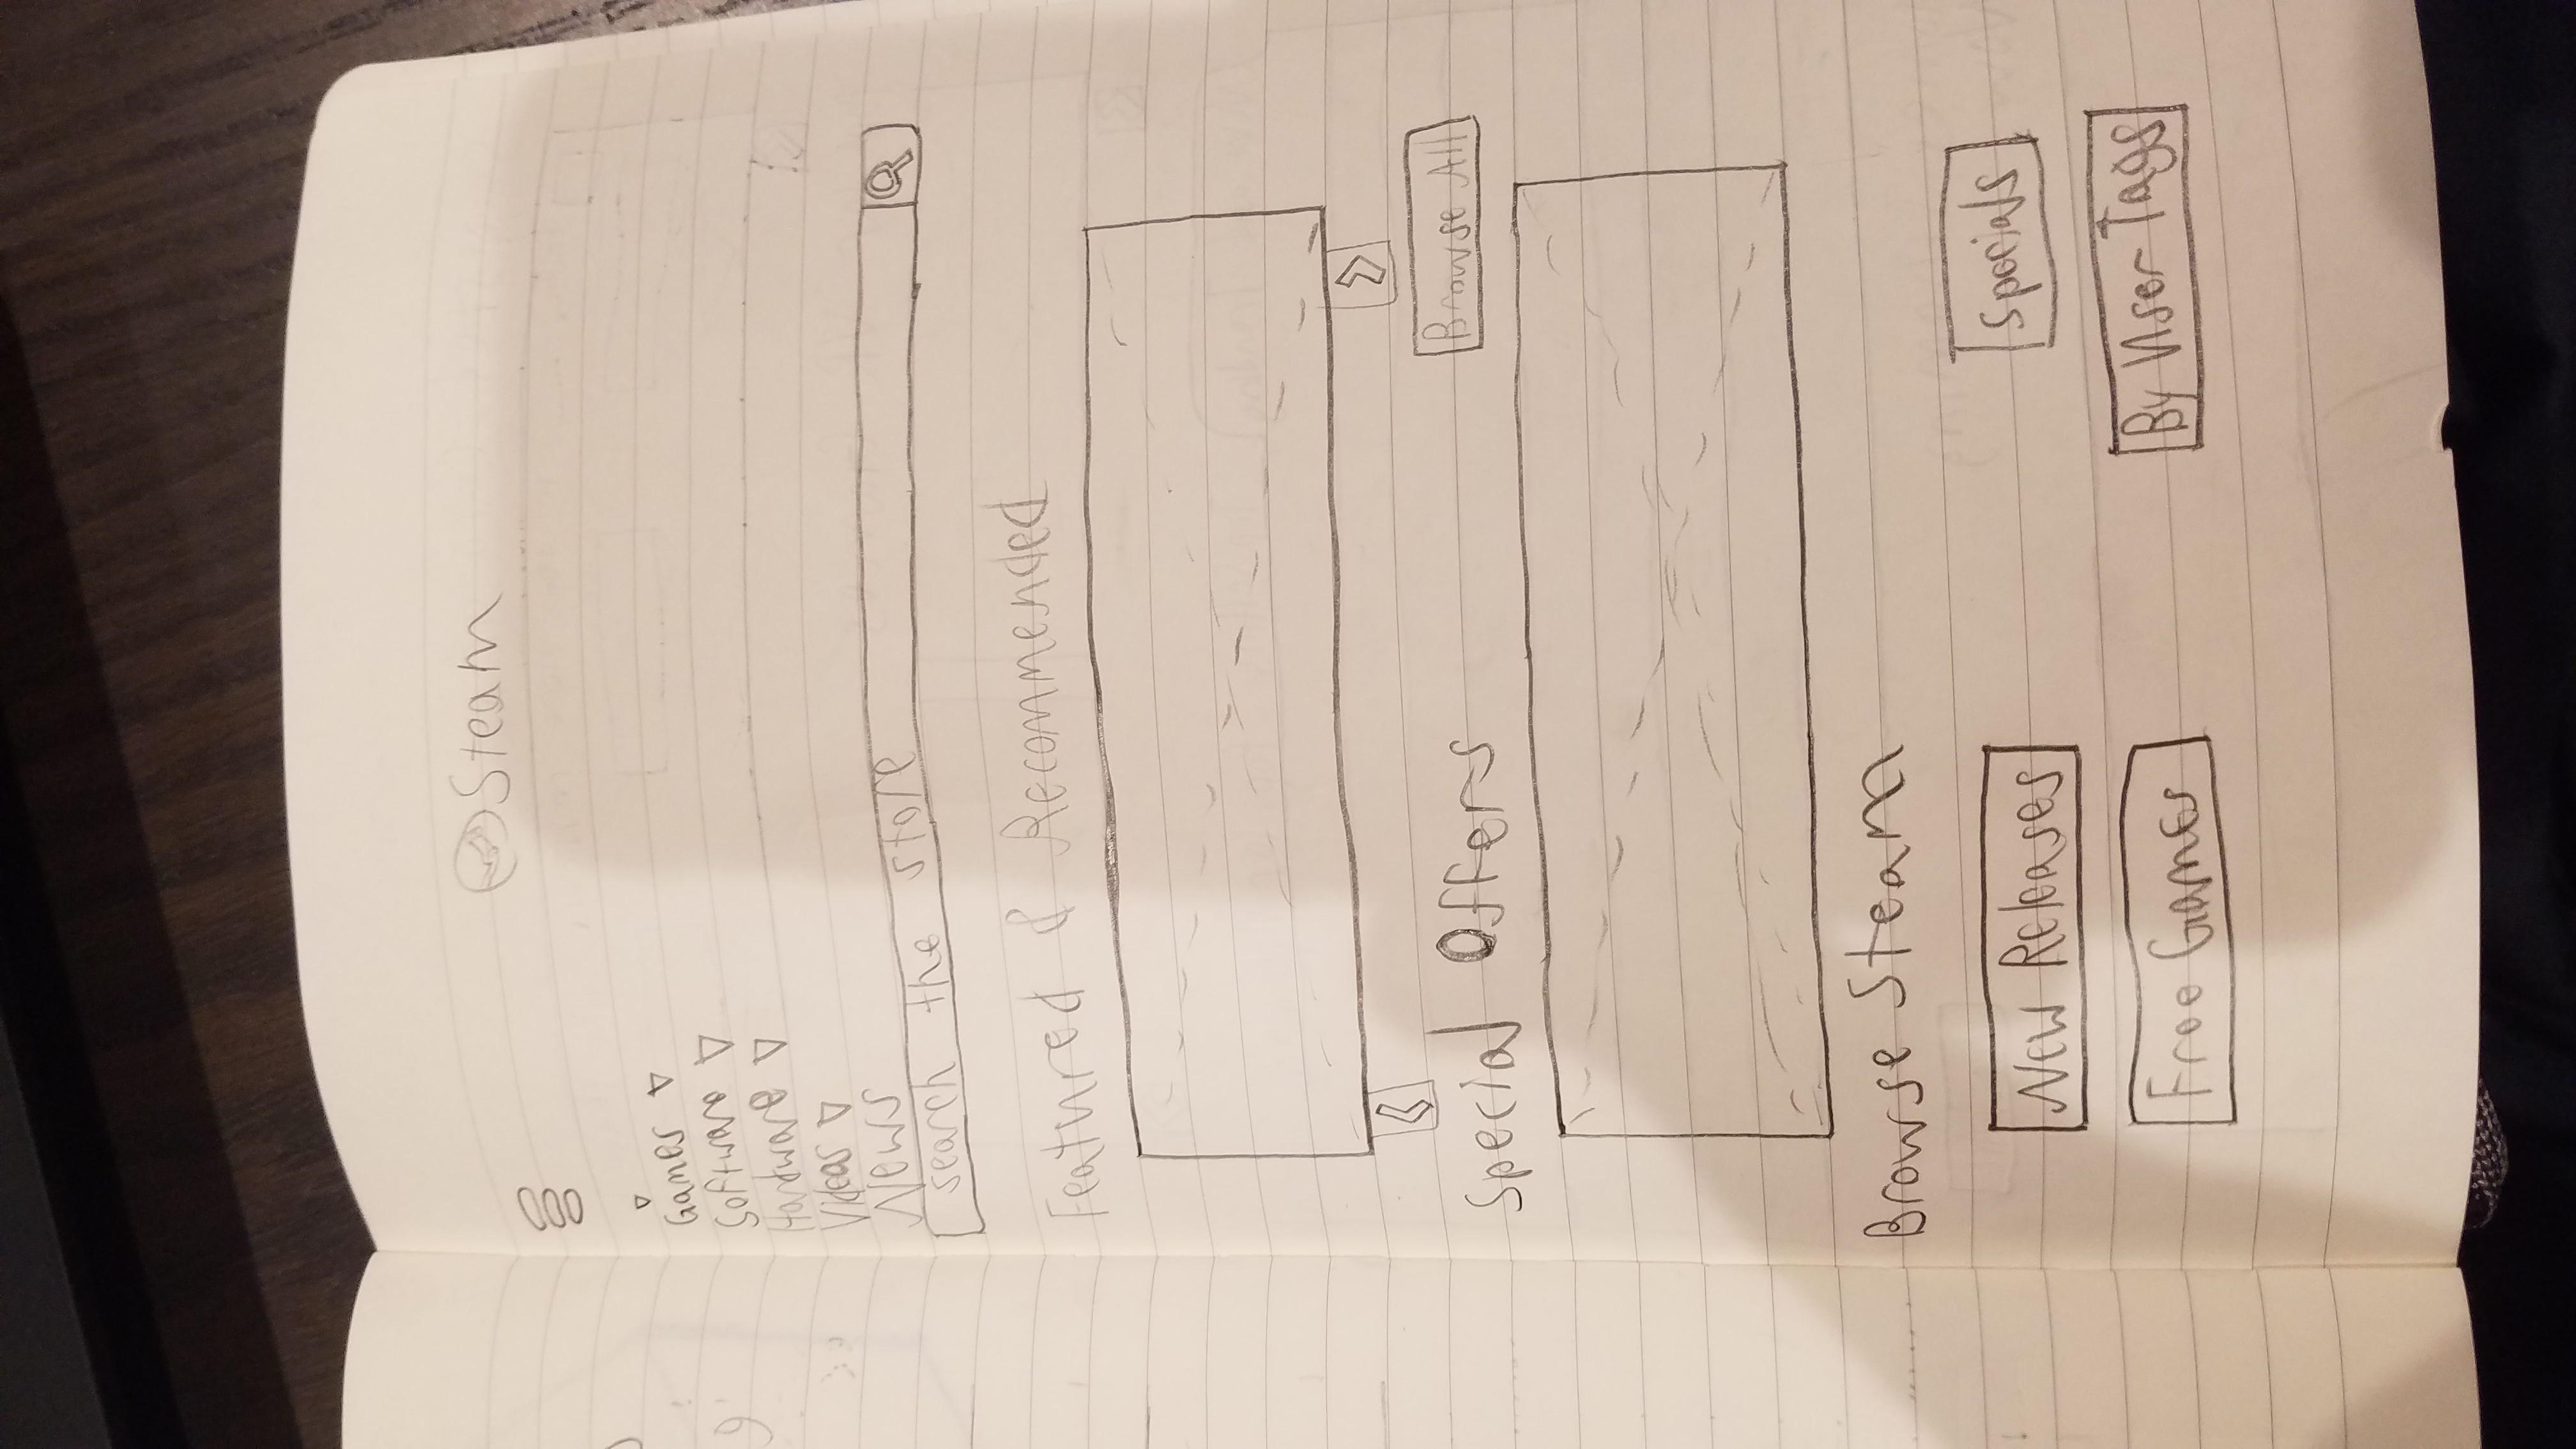 Steam
Games
Software
Hardware
Videos
News
search the store
Featured & Recommended
Browse All
Special Offers
Browse Steam
New Releases
Specials
Free Games
By User Tags